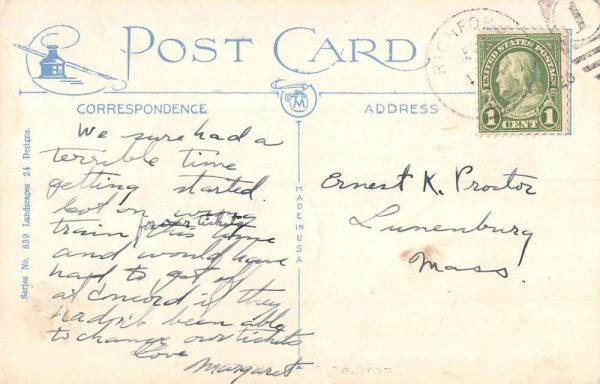 POST CARD
CORRESPONDENCE
ADDRESS
M
RICHFOR
UNITED STATES POSTAGE
FRANKLIN
1 CENT 1
1
Series No. 839 Landscapes 24 Designs.
MADE IN USA
We sure had a
terrible time
getting started.
Got on wrong
for our tickets
train this time
and would have
had to get off
at Concord if they
hadn't been able
to change our tickets
Love
Margaret
Ernest K. Proctor
Lunenburg
Mass.